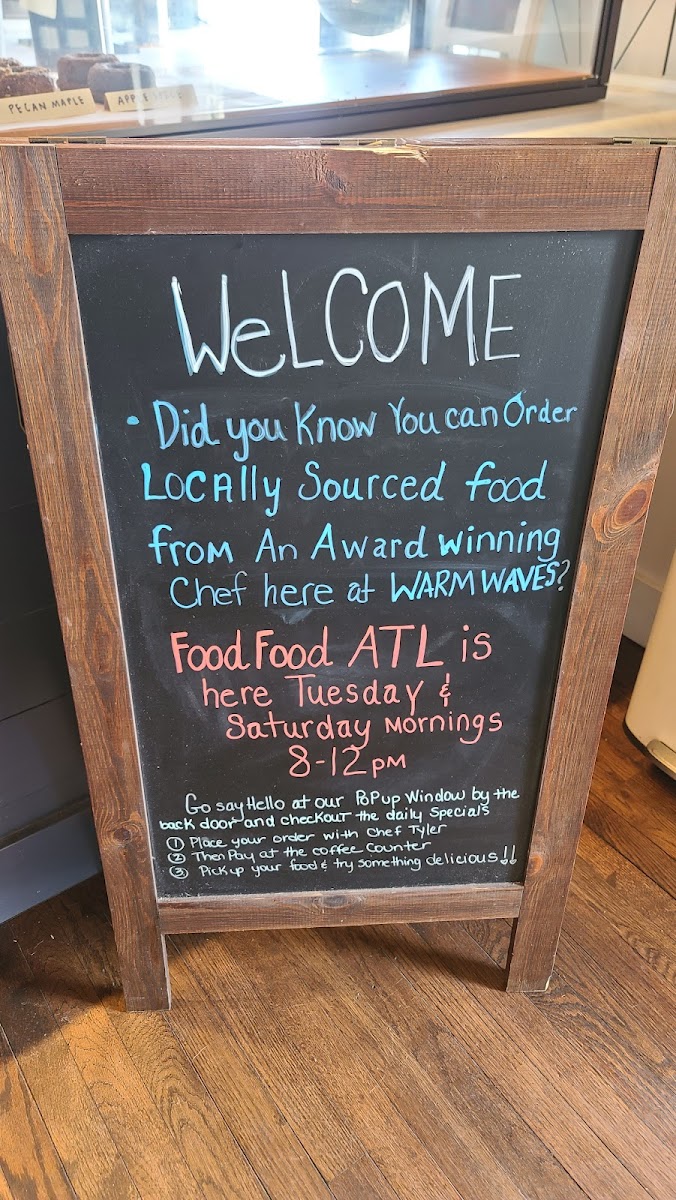 PECAN MAPLE
WeLCOME
• Did you Know You can Order
LOCAlly Sourced food
from An Award winning
Chef here at WARM WAVES?
Food Food ATL is
here Tuesday &
Saturday Mornings
8-12 pm
Go say Hello at our PoP up Window by the
back door and checkout the daily Specials
① Place your order with Chef Tyler
② Then Pay at the coffee Counter
③ Pick up your food & try something delicious!!